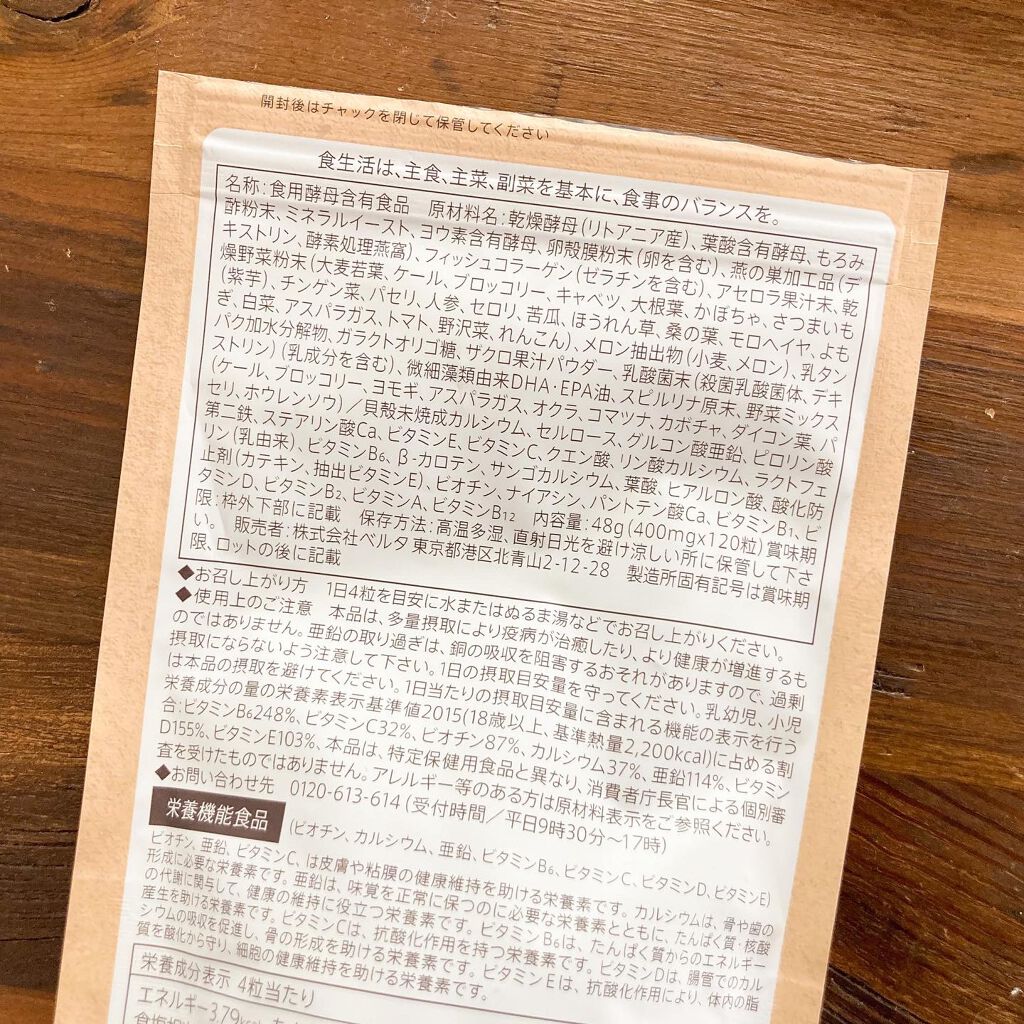 開封後はチャックを閉じて保管してください
食生活は、主食、主菜、副菜を基本に、食事のバランスを。
名称：食用酵母含有食品　原材料名：乾燥酵母(リトアニア産)、葉酸含有酵母、もろみ
酢粉末、ミネラルイースト、ヨウ素含有酵母、卵殻膜粉末(卵を含む)、燕の巣加工品(デ
キストリン、酵素処理燕窩)、フィッシュコラーゲン(ゼラチンを含む)、アセロラ果汁末、乾
燥野菜粉末(大麦若葉、ケール、ブロッコリー、キャベツ、大根葉、かぼちゃ、さつまいも
(紫芋)、チンゲン菜、パセリ、人参、セロリ、苦瓜、ほうれん草、桑の葉、モロヘイヤ、よも
ぎ、白菜、アスパラガス、トマト、野沢菜、れんこん)、メロン抽出物(小麦、メロン)、乳タン
パク加水分解物、ガラクトオリゴ糖、ザクロ果汁パウダー、乳酸菌末(殺菌乳酸菌体、デキ
ストリン)(乳成分を含む)、微細藻類由来DHA・EPA油、スピルリナ原末、野菜ミックス
(ケール、ブロッコリー、ヨモギ、アスパラガス、オクラ、コマツナ、カボチャ、ダイコン葉、パ
セリ、ホウレンソウ)／貝殻未焼成カルシウム、セルロース、グルコン酸亜鉛、ピロリン酸
第二鉄、ステアリン酸Ca、ビタミンE、ビタミンC、クエン酸、リン酸カルシウム、ラクトフェ
リン(乳由来)、ビタミンB6、β-カロテン、サンゴカルシウム、葉酸、ヒアルロン酸、酸化防
止剤(カテキン、抽出ビタミンE)、ビオチン、ナイアシン、パントテン酸Ca、ビタミンB1、ビ
タミンD、ビタミンB2、ビタミンA、ビタミンB12　内容量：48g(400mg×120粒) 賞味期
限：枠外下部に記載　保存方法：高温多湿、直射日光を避け涼しい所に保管して下さ
い。　販売者：株式会社ベルタ 東京都港区北青山2-12-28　製造所固有記号は賞味期
限、ロットの後に記載
◆お召し上がり方　1日4粒を目安に水またはぬるま湯などでお召し上がりください。
◆使用上のご注意　本品は、多量摂取により疾病が治癒したり、より健康が増進するも
のではありません。亜鉛の取り過ぎは、銅の吸収を阻害するおそれがありますので、過剰
摂取にならないよう注意して下さい。1日の摂取目安量を守ってください。乳幼児、小児
は本品の摂取を避けてください。1日当たりの摂取目安量に含まれる機能の表示を行う
栄養成分の量の栄養素表示基準値2015(18歳以上、基準熱量2,200kcal)に占める割
合：ビタミンB6248%、ビタミンC32%、ビオチン87%、カルシウム37%、亜鉛114%、ビタミン
D155%、ビタミンE103%、本品は、特定保健用食品と異なり、消費者庁長官による個別審
査を受けたものではありません。アレルギー等のある方は原材料表示をご参照ください。
◆お問い合わせ先　0120-613-614(受付時間／平日9時30分～17時)
栄養機能食品 (ビオチン、カルシウム、亜鉛、ビタミンB6、ビタミンC、ビタミンD、ビタミンE)
ビオチン、亜鉛、ビタミンC、は皮膚や粘膜の健康維持を助ける栄養素です。カルシウムは、骨や歯の
形成に必要な栄養素です。亜鉛は、味覚を正常に保つのに必要な栄養素とともに、たんぱく質・核酸
の代謝に関与して、健康の維持に役立つ栄養素です。ビタミンB6は、たんぱく質からのエネルギー
産生を助ける栄養素です。ビタミンCは、抗酸化作用を持つ栄養素です。ビタミンDは、腸管でのカル
シウムの吸収を促進し、骨の形成を助ける栄養素です。ビタミンEは、抗酸化作用により、体内の脂
質を酸化から守り、細胞の健康維持を助ける栄養素です。
栄養成分表示 4粒当たり
エネルギー3.79kcal